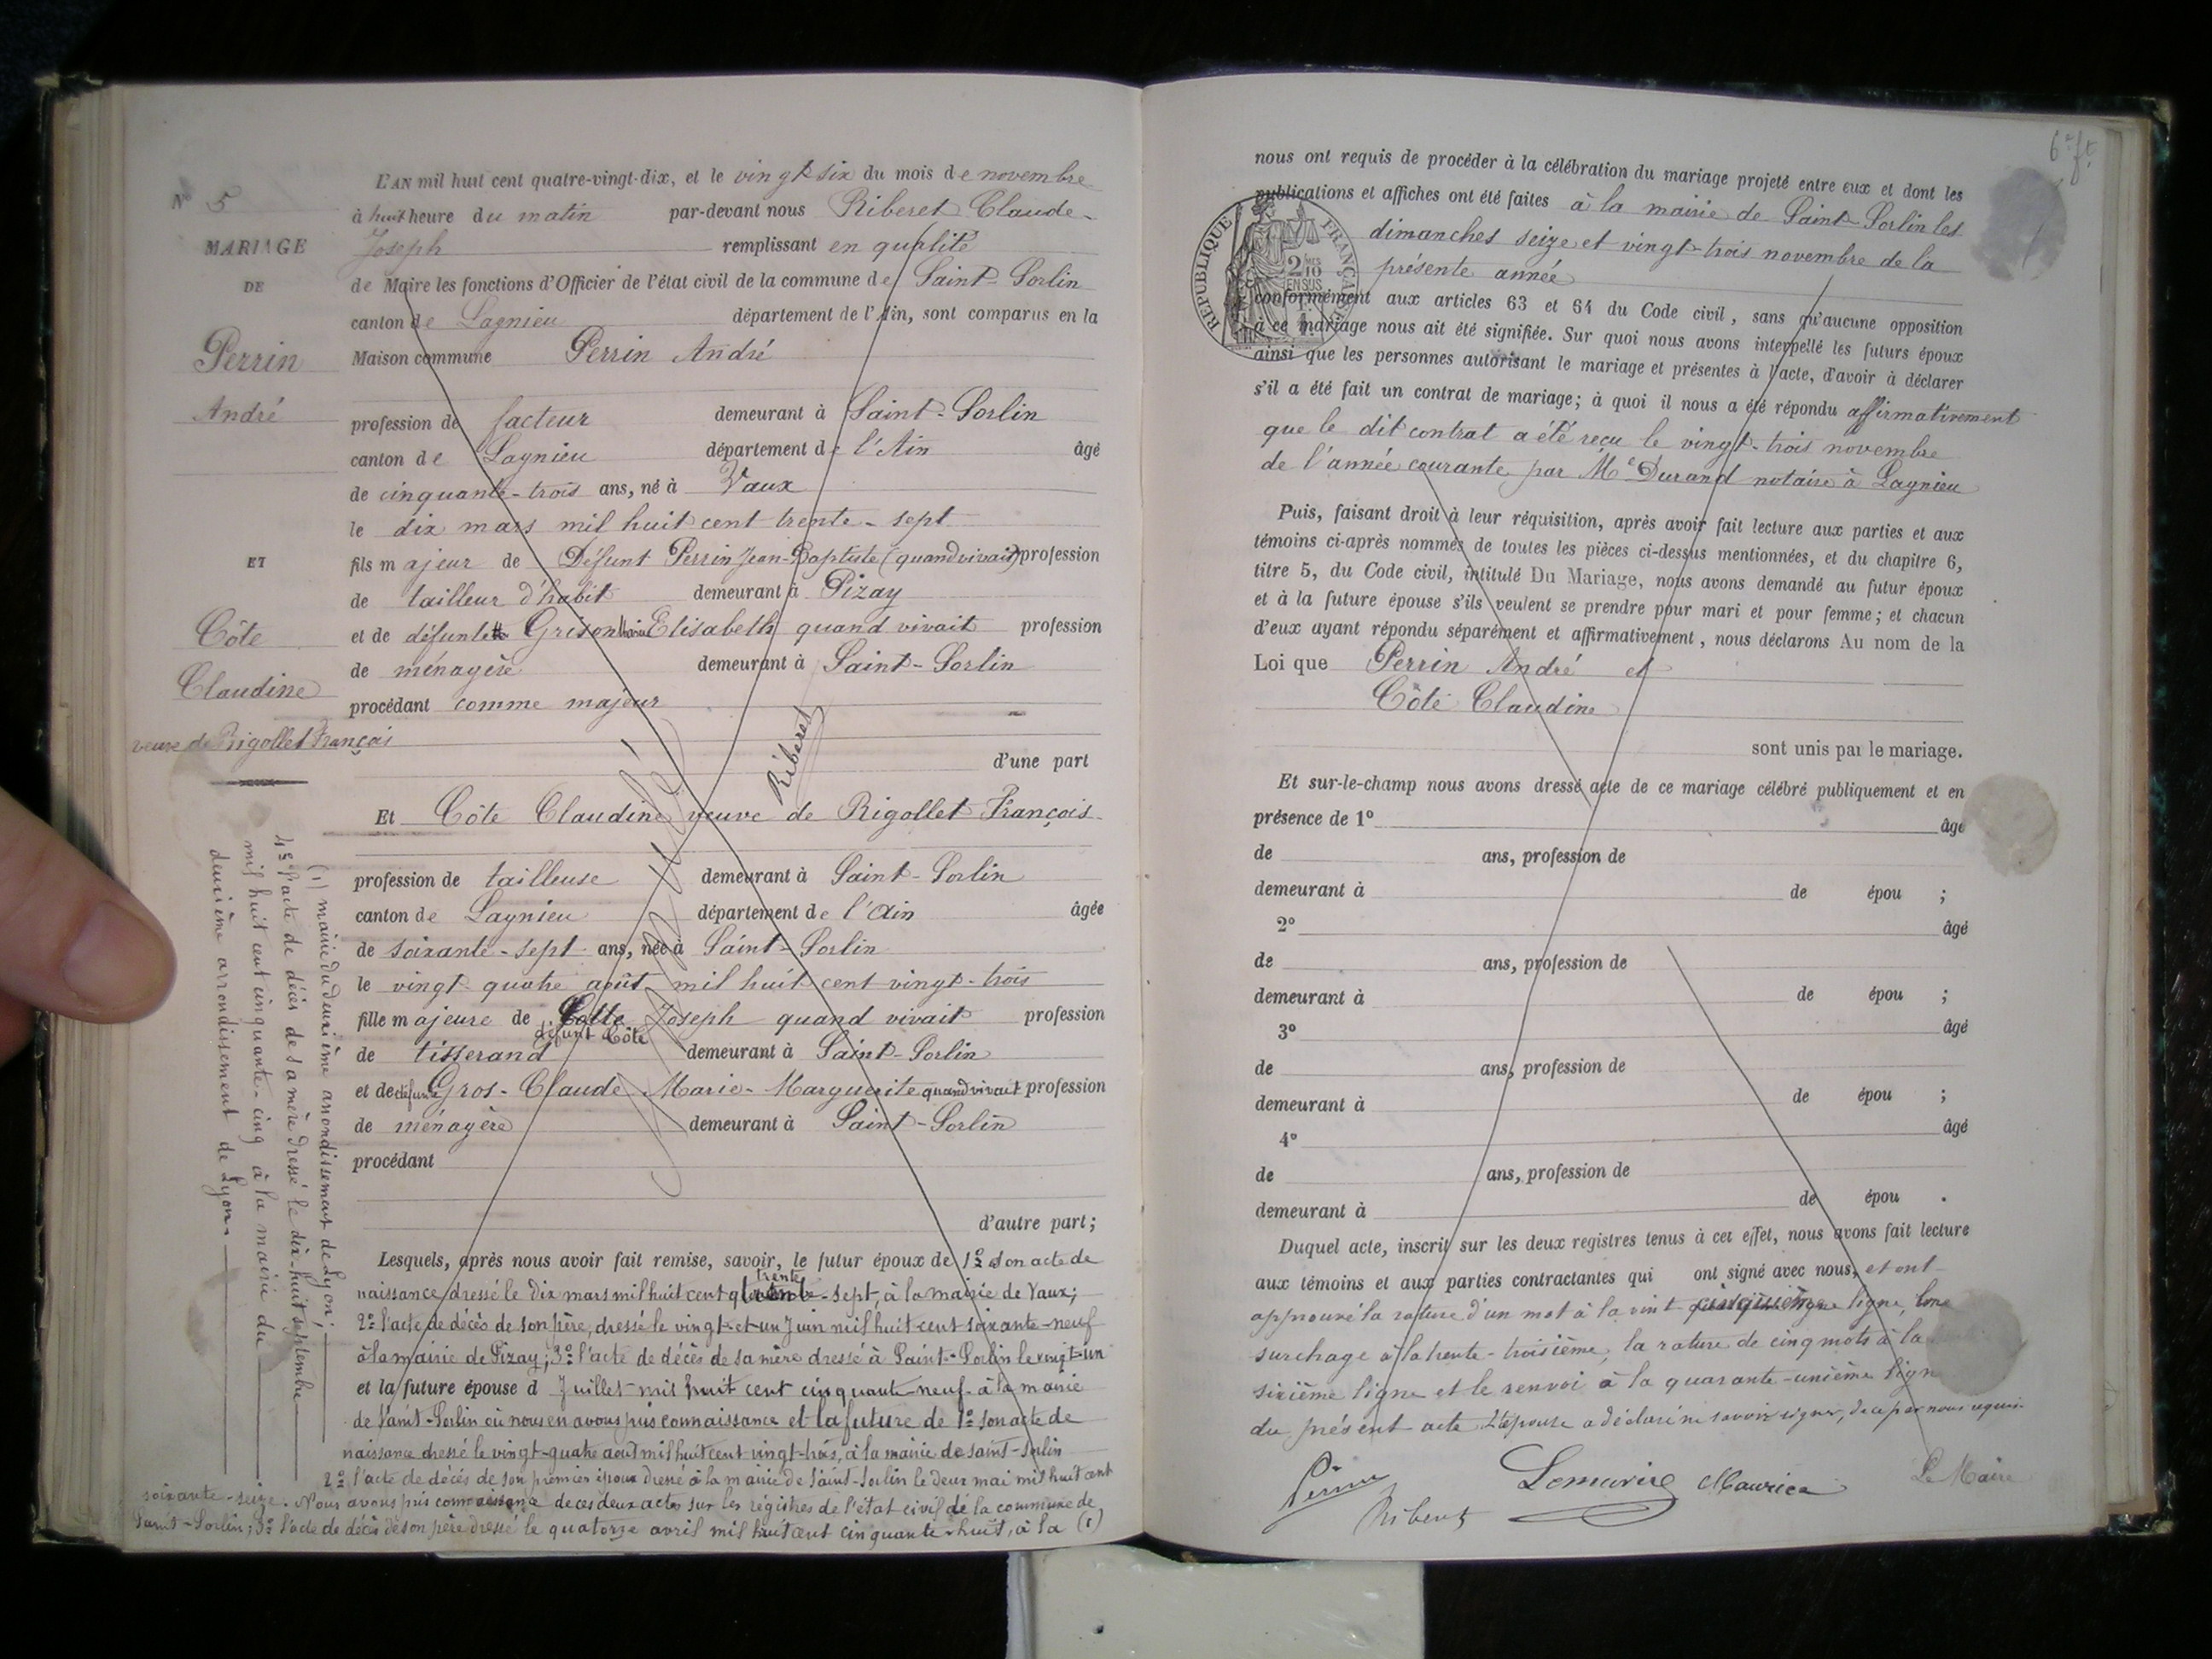 N° 5
MARIAGE
DE
Perrin
André
ET
Côte
Claudine
veuve de Rigollet François
L'AN mil huit cent quatre-vingt-dix, et le vingt-six du mois de novembre
à huit heure du matin par-devant nous Riberet Claude-
Joseph remplissant en qualité
de Maire les fonctions d'Officier de l'état civil de la commune de Saint-Sorlin
canton de Lagnieu département de l'Ain, sont comparus en la
Maison commune Perrin André
profession de facteur demeurant à Saint-Sorlin
canton de Lagnieu département de l'Ain âgé
de cinquante-trois ans, né à Vaux
le dix mars mil huit cent trente-sept
fils majeur de Défunt Perrin Jean-Baptiste (quand vivait) profession
de tailleur d'habit demeurant à Pizay
et de défunte Grison Marie Elisabeth quand vivait profession
de ménagère demeurant à Saint-Sorlin
procédant comme majeur
d'une part
Riberet
Annulé
Et Côte Claudine veuve de Rigollet François
profession de tailleuse demeurant à Saint-Sorlin
canton de Lagnieu département de l'Ain âgée
de soixante-sept ans, née à Saint-Sorlin
le vingt quatre août mil huit cent vingt-trois
fille majeure de Joseph quand vivait profession
défunt Côte
de tisserand demeurant à Saint-Sorlin
et de défunte Gros-Claude Marie-Marguerite quand vivait profession
de ménagère demeurant à Saint-Sorlin
procédant
d'autre part;
Lesquels, après nous avoir fait remise, savoir, le futur époux de 1° Son acte de
naissance dressé le dix mars mil huit cent trente-sept, à la mairie de Vaux;
2° l'acte de décès de son père, dressé le vingt-et-un Juin mil huit cent soixante-neuf
à la mairie de Pizay; 3° l'acte de décès de sa mère dressé à Saint-Sorlin le vingt-un
et la future épouse d Juillet mil huit cent cinquante-neuf à la mairie
de Saint-Sorlin où nous en avons pris connaissance et la future de 1° son acte de
naissance dressé le vingt-quatre août mil huit cent vingt-trois, à la mairie de Saint-Sorlin
2° l'acte de décès de son premier époux dressé à la mairie de Saint-Sorlin le deux mai mil huit cent
soixante-seize. Nous avons pris connaissance de ces deux actes sur les régistres de l'état civil de la commune de
Saint-Sorlin; 3° l'acte de décès de son père dressé le quatorze avril mil huit cent cinquante-huit, à la (1)
(1) mairie du deuxième arrondissement de Lyon;
4° l'acte de décès de sa mère dressé le dix-huit septembre
mil huit cent cinquante-cinq à la mairie du
deuxième arrondissement de Lyon.
6e ft.
nous ont requis de procéder à la célébration du mariage projeté entre eux et dont les
publications et affiches ont été faites à la mairie de Saint-Sorlin les
dimanches seize et vingt-trois novembre de la
présente année
RÉPUBLIQUE FRANÇAISE
2 MES 10 EN SUS
conformément aux articles 63 et 64 du Code civil, sans qu'aucune opposition
à ce mariage nous ait été signifiée. Sur quoi nous avons interpellé les futurs époux
ainsi que les personnes autorisant le mariage et présentes à l'acte, d'avoir à déclarer
s'il a été fait un contrat de mariage; à quoi il nous a été répondu affirmativement
que le dit contrat a été reçu le vingt-trois novembre
de l'année courante par Me Durand notaire à Lagnieu
Puis, faisant droit à leur réquisition, après avoir fait lecture aux parties et aux
témoins ci-après nommés de toutes les pièces ci-dessus mentionnées, et du chapitre 6,
titre 5, du Code civil, intitulé Du Mariage, nous avons demandé au futur époux
et à la future épouse s'ils veulent se prendre pour mari et pour femme; et chacun
d'eux ayant répondu séparément et affirmativement, nous déclarons Au nom de la
Loi que Perrin André et
Côte Claudine
sont unis par le mariage.
Et sur-le-champ nous avons dressé acte de ce mariage célébré publiquement et en
présence de 1° âgé
de ans, profession de
demeurant à de épou ;
2° âgé
de ans, profession de
demeurant à de épou ;
3° âgé
de ans, profession de
demeurant à de épou ;
4° âgé
de ans, profession de
demeurant à de épou .
Duquel acte, inscrit sur les deux registres tenus à cet effet, nous avons fait lecture
aux témoins et aux parties contractantes qui ont signé avec nous, et ont
approuvé la rature d'un mot à la vint ligne, une
surchage à la trente-troisième, la rature de cinq mots à la
sixième ligne et le renvoi à la quarante-unième lign
du présent acte L'épouse a déclaré ne savoir signer, de ce par nous requise
Perrin Lemarire Maurice Le Maire
Riberet